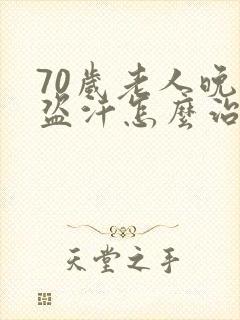 70歲老人晚
盜汗怎麼治
天堂之手